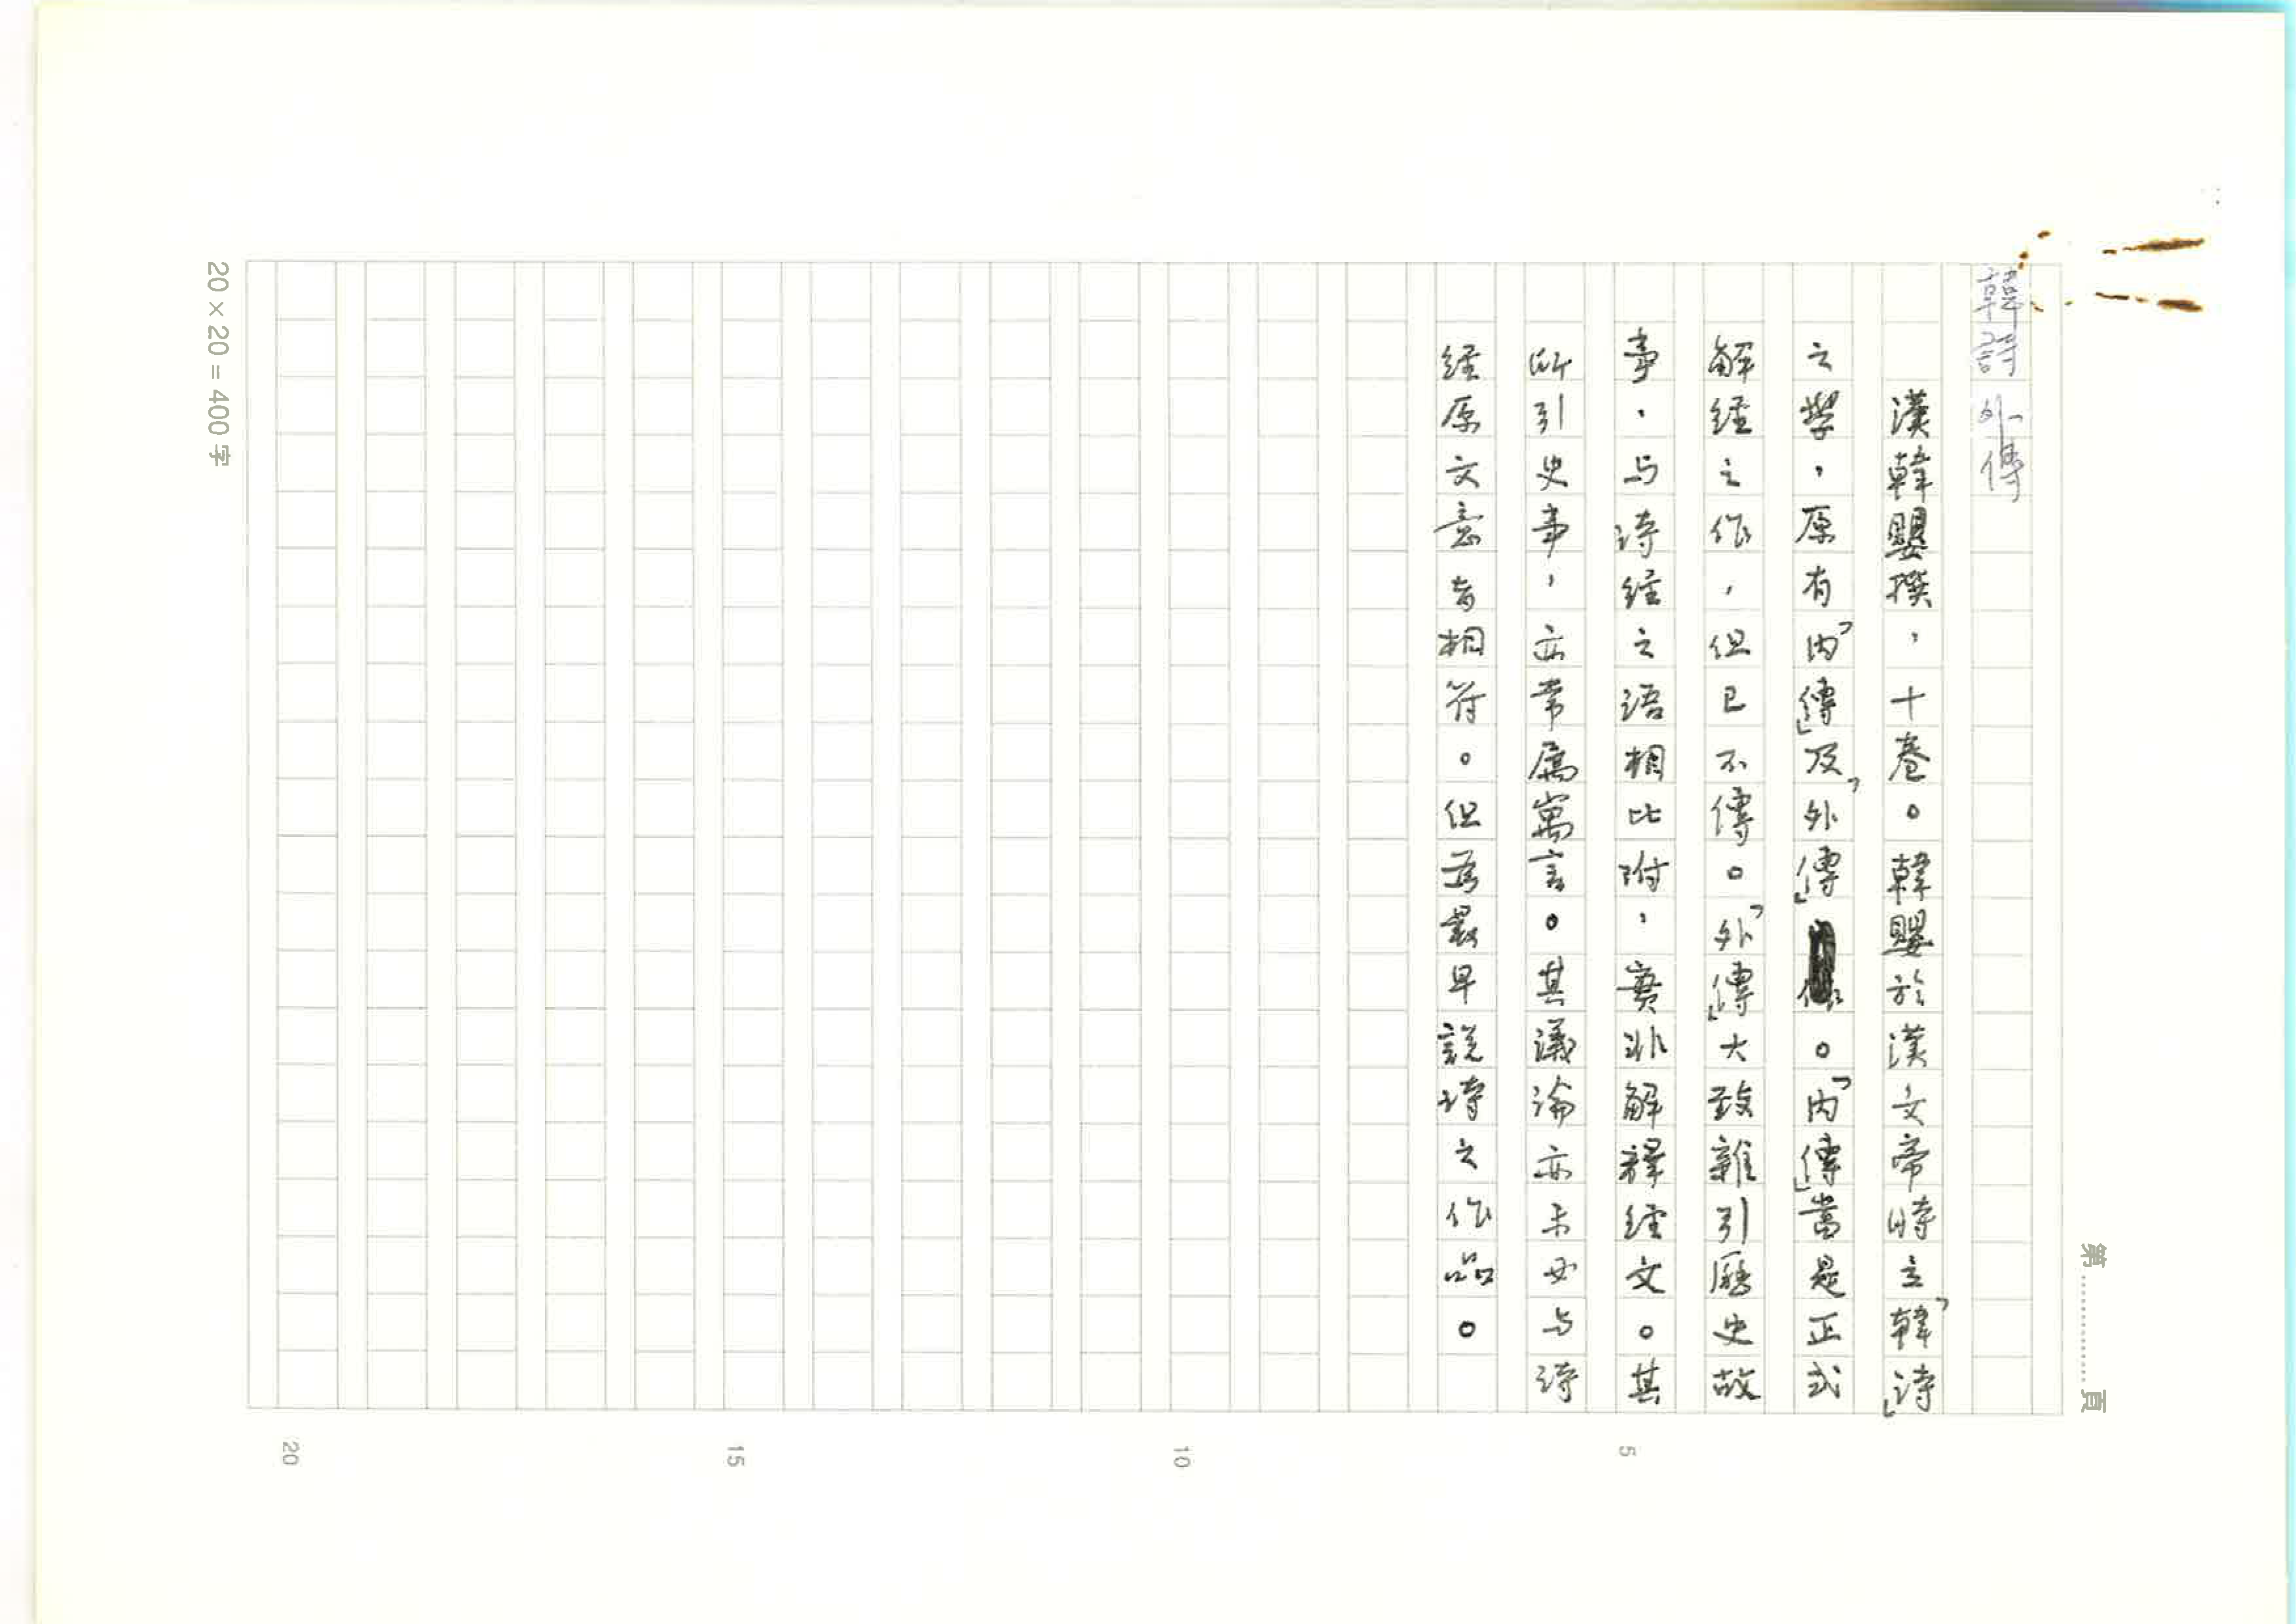 韓詩外傳
漢韓嬰撰，十卷。韓嬰於漢文帝時立「韓詩」
之學，原有「內傳」及「外傳」。「內傳」當是正式
解經之作，但已不傳。「外傳」大致雜引歷史故
事，与詩經之語相比附，實非解釋經文。其
所引史事，亦常属寓言。其議論亦未必与詩
經原文意旨相符。但為最早說詩之作品。
第…………頁
5
10
15
20
20×20=400字